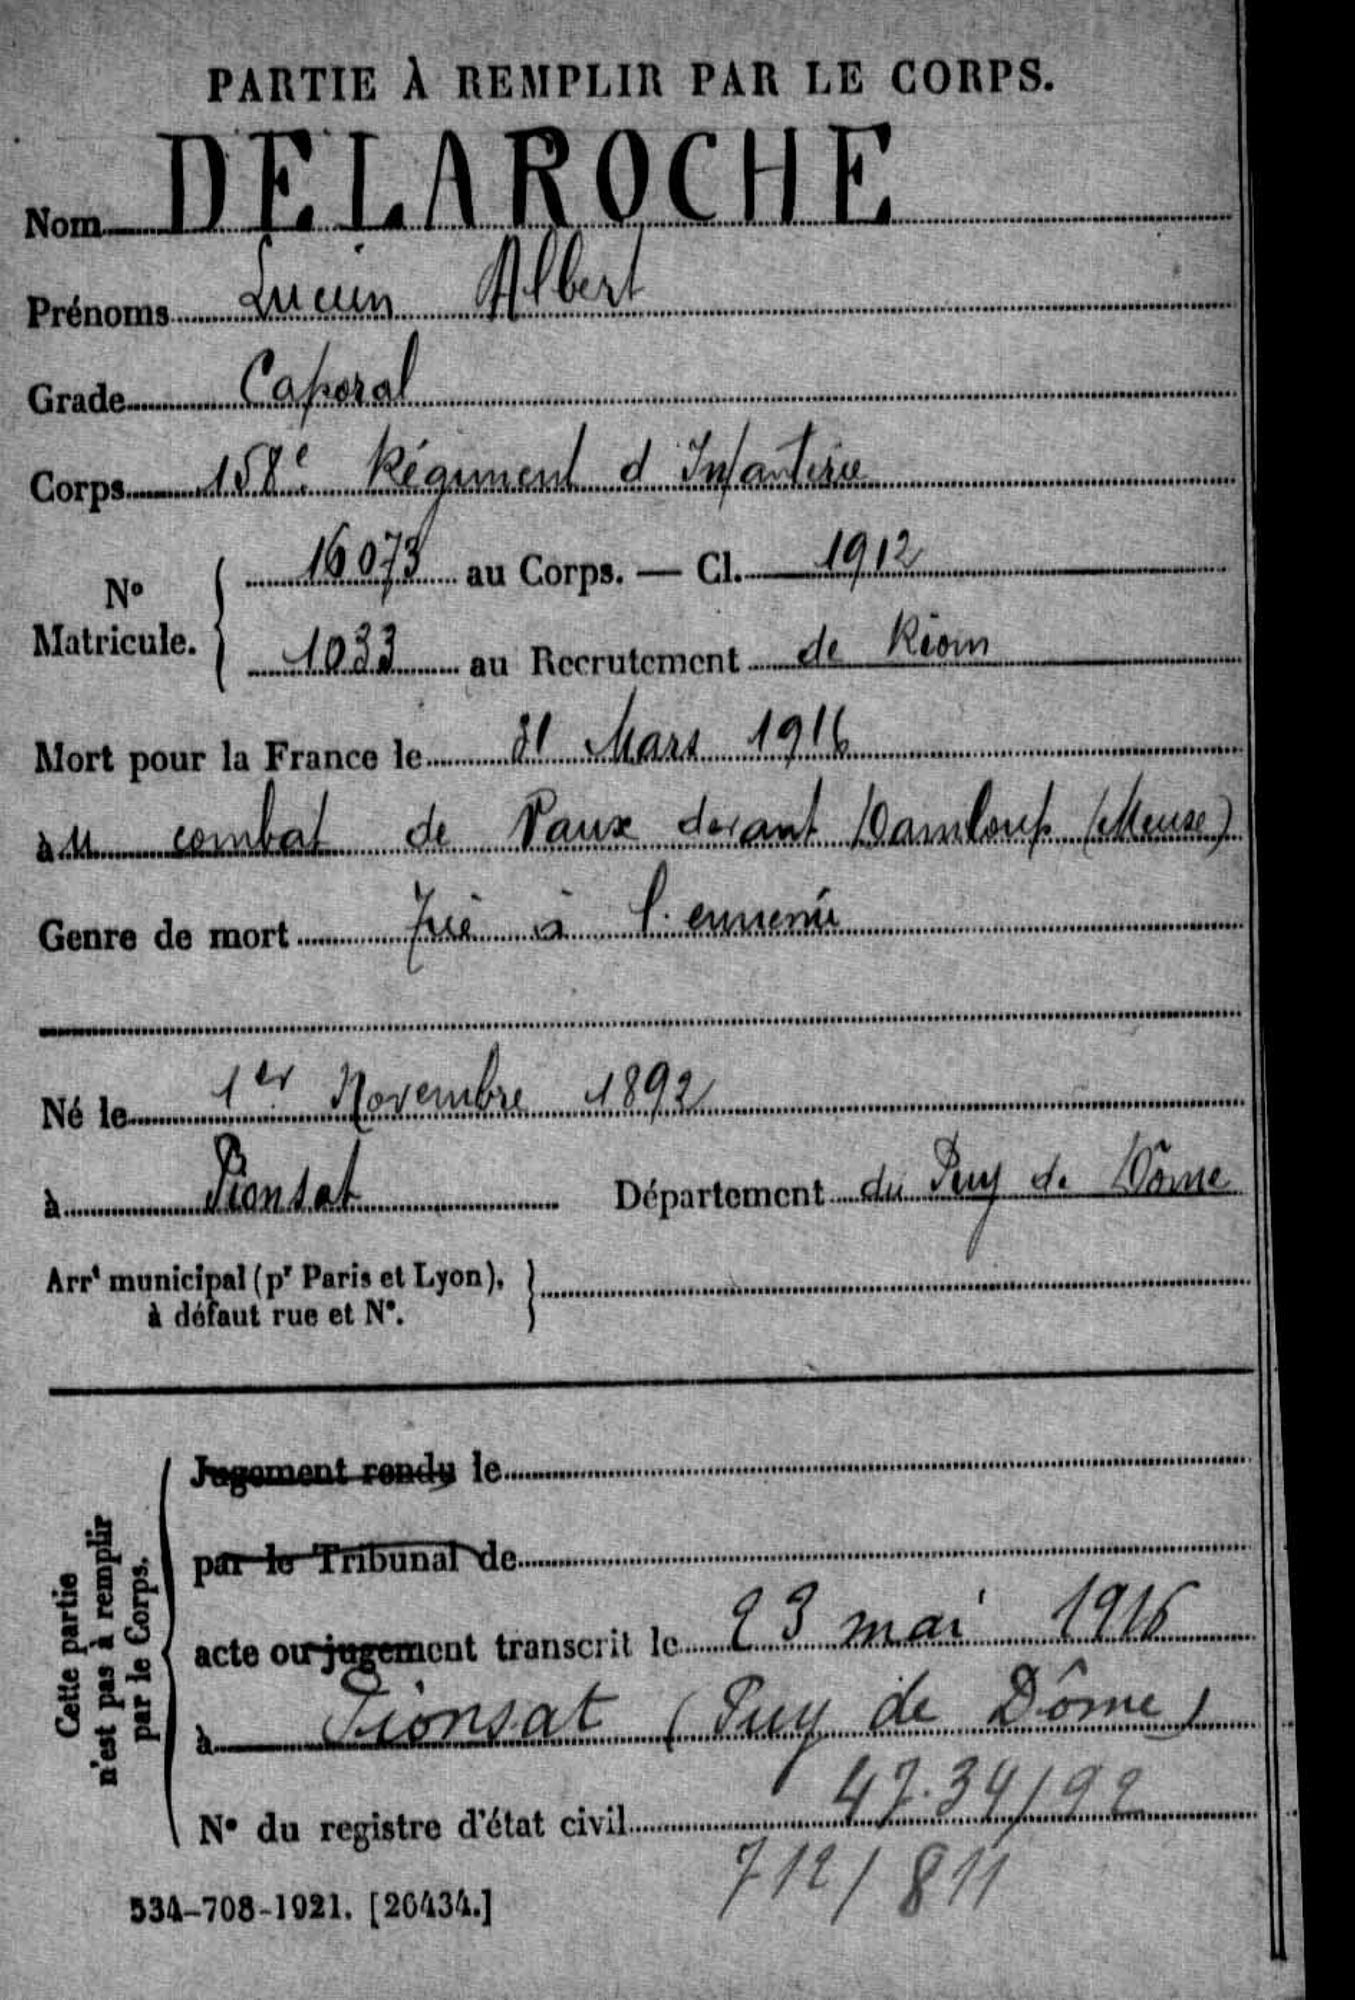 PARTIE À REMPLIR PAR LE CORPS.
Nom DELAROCHE
Prénoms Lucien Albert
Grade Caporal
Corps 158e Régiment d Infanterie
No Matricule. { 16073 au Corps. — Cl. 1912
1033 au Recrutement de Riom
Mort pour la France le 31 Mars 1916
au combat de Vaux devant Damloup (Meuse)
Genre de mort Tué à l'ennemi
Né le 1er Novembre 1892
à Pionsat Département du Puy de Dôme
Arrt municipal (pr Paris et Lyon), }
à défaut rue et No.
Cette partie
n'est pas à remplir
par le Corps.
Jugement rendu le
par le Tribunal de
acte ou jugement transcrit le 23 mai 1916
à Pionsat (Puy de Dôme)
No du registre d'état civil
47.34/92
712/811
534-708-1921. [26434.]